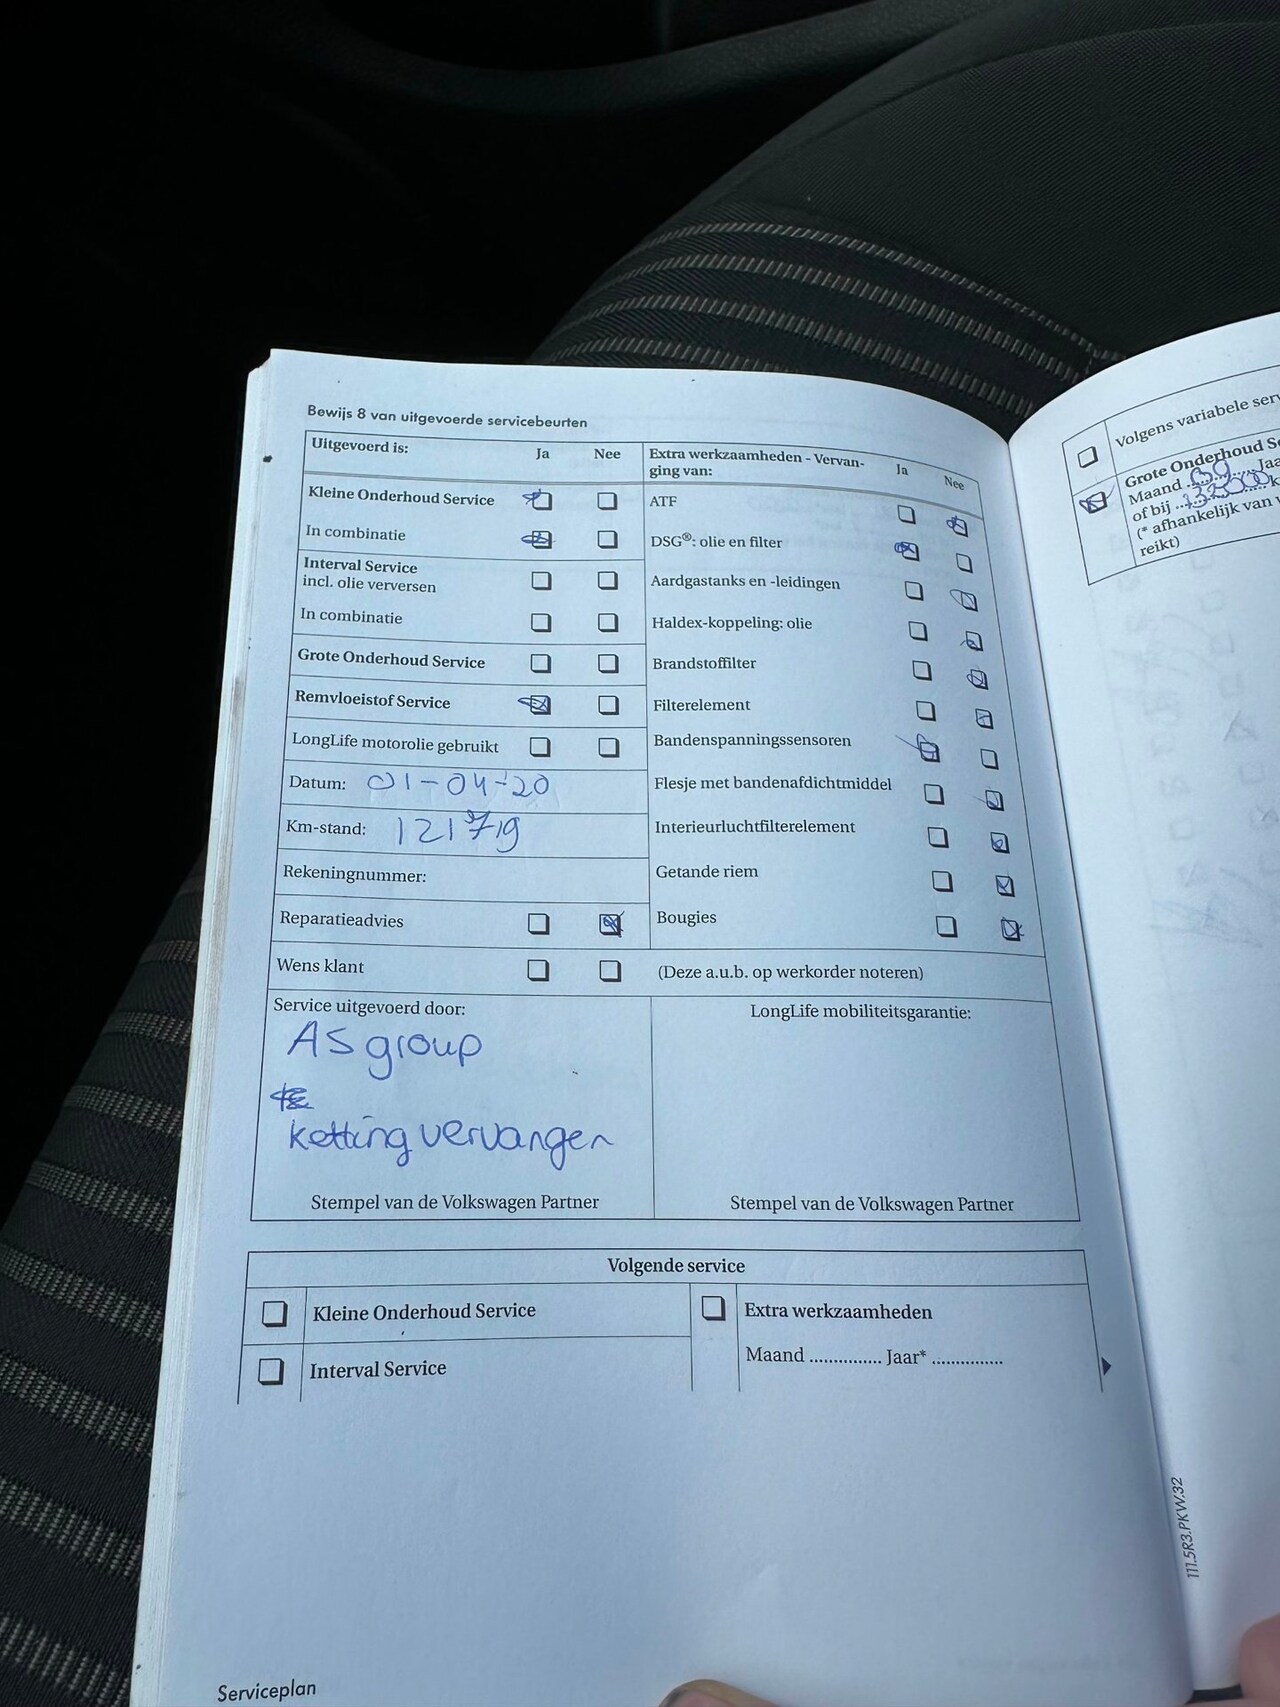 Bewijs 8 van uitgevoerde servicebeurten
Uitgevoerd is: Ja Nee
Kleine Onderhoud Service
In combinatie
Interval Service
incl. olie verversen
In combinatie
Grote Onderhoud Service
Remvloeistof Service
LongLife motorolie gebruikt
Datum: 01-04-'20
Km-stand: 121719
Rekeningnummer:
Reparatieadvies
Wens klant
Extra werkzaamheden - Vervan-
ging van: Ja Nee
ATF
DSG®: olie en filter
Aardgastanks en -leidingen
Haldex-koppeling: olie
Brandstoffilter
Filterelement
Bandenspanningssensoren
Flesje met bandenafdichtmiddel
Interieurluchtfilterelement
Getande riem
Bougies
(Deze a.u.b. op werkorder noteren)
Service uitgevoerd door:
AS group
ketting vervangen
Stempel van de Volkswagen Partner
LongLife mobiliteitsgarantie:
Stempel van de Volkswagen Partner
Volgende service
Kleine Onderhoud Service
Interval Service
Extra werkzaamheden
Maand .............. Jaar* ..............
Serviceplan
Volgens variabele serv
Grote Onderhoud Se
Maand 09 Jaa
of bij k
(* afhankelijk van
reikt)
111.5R3.PKW.32